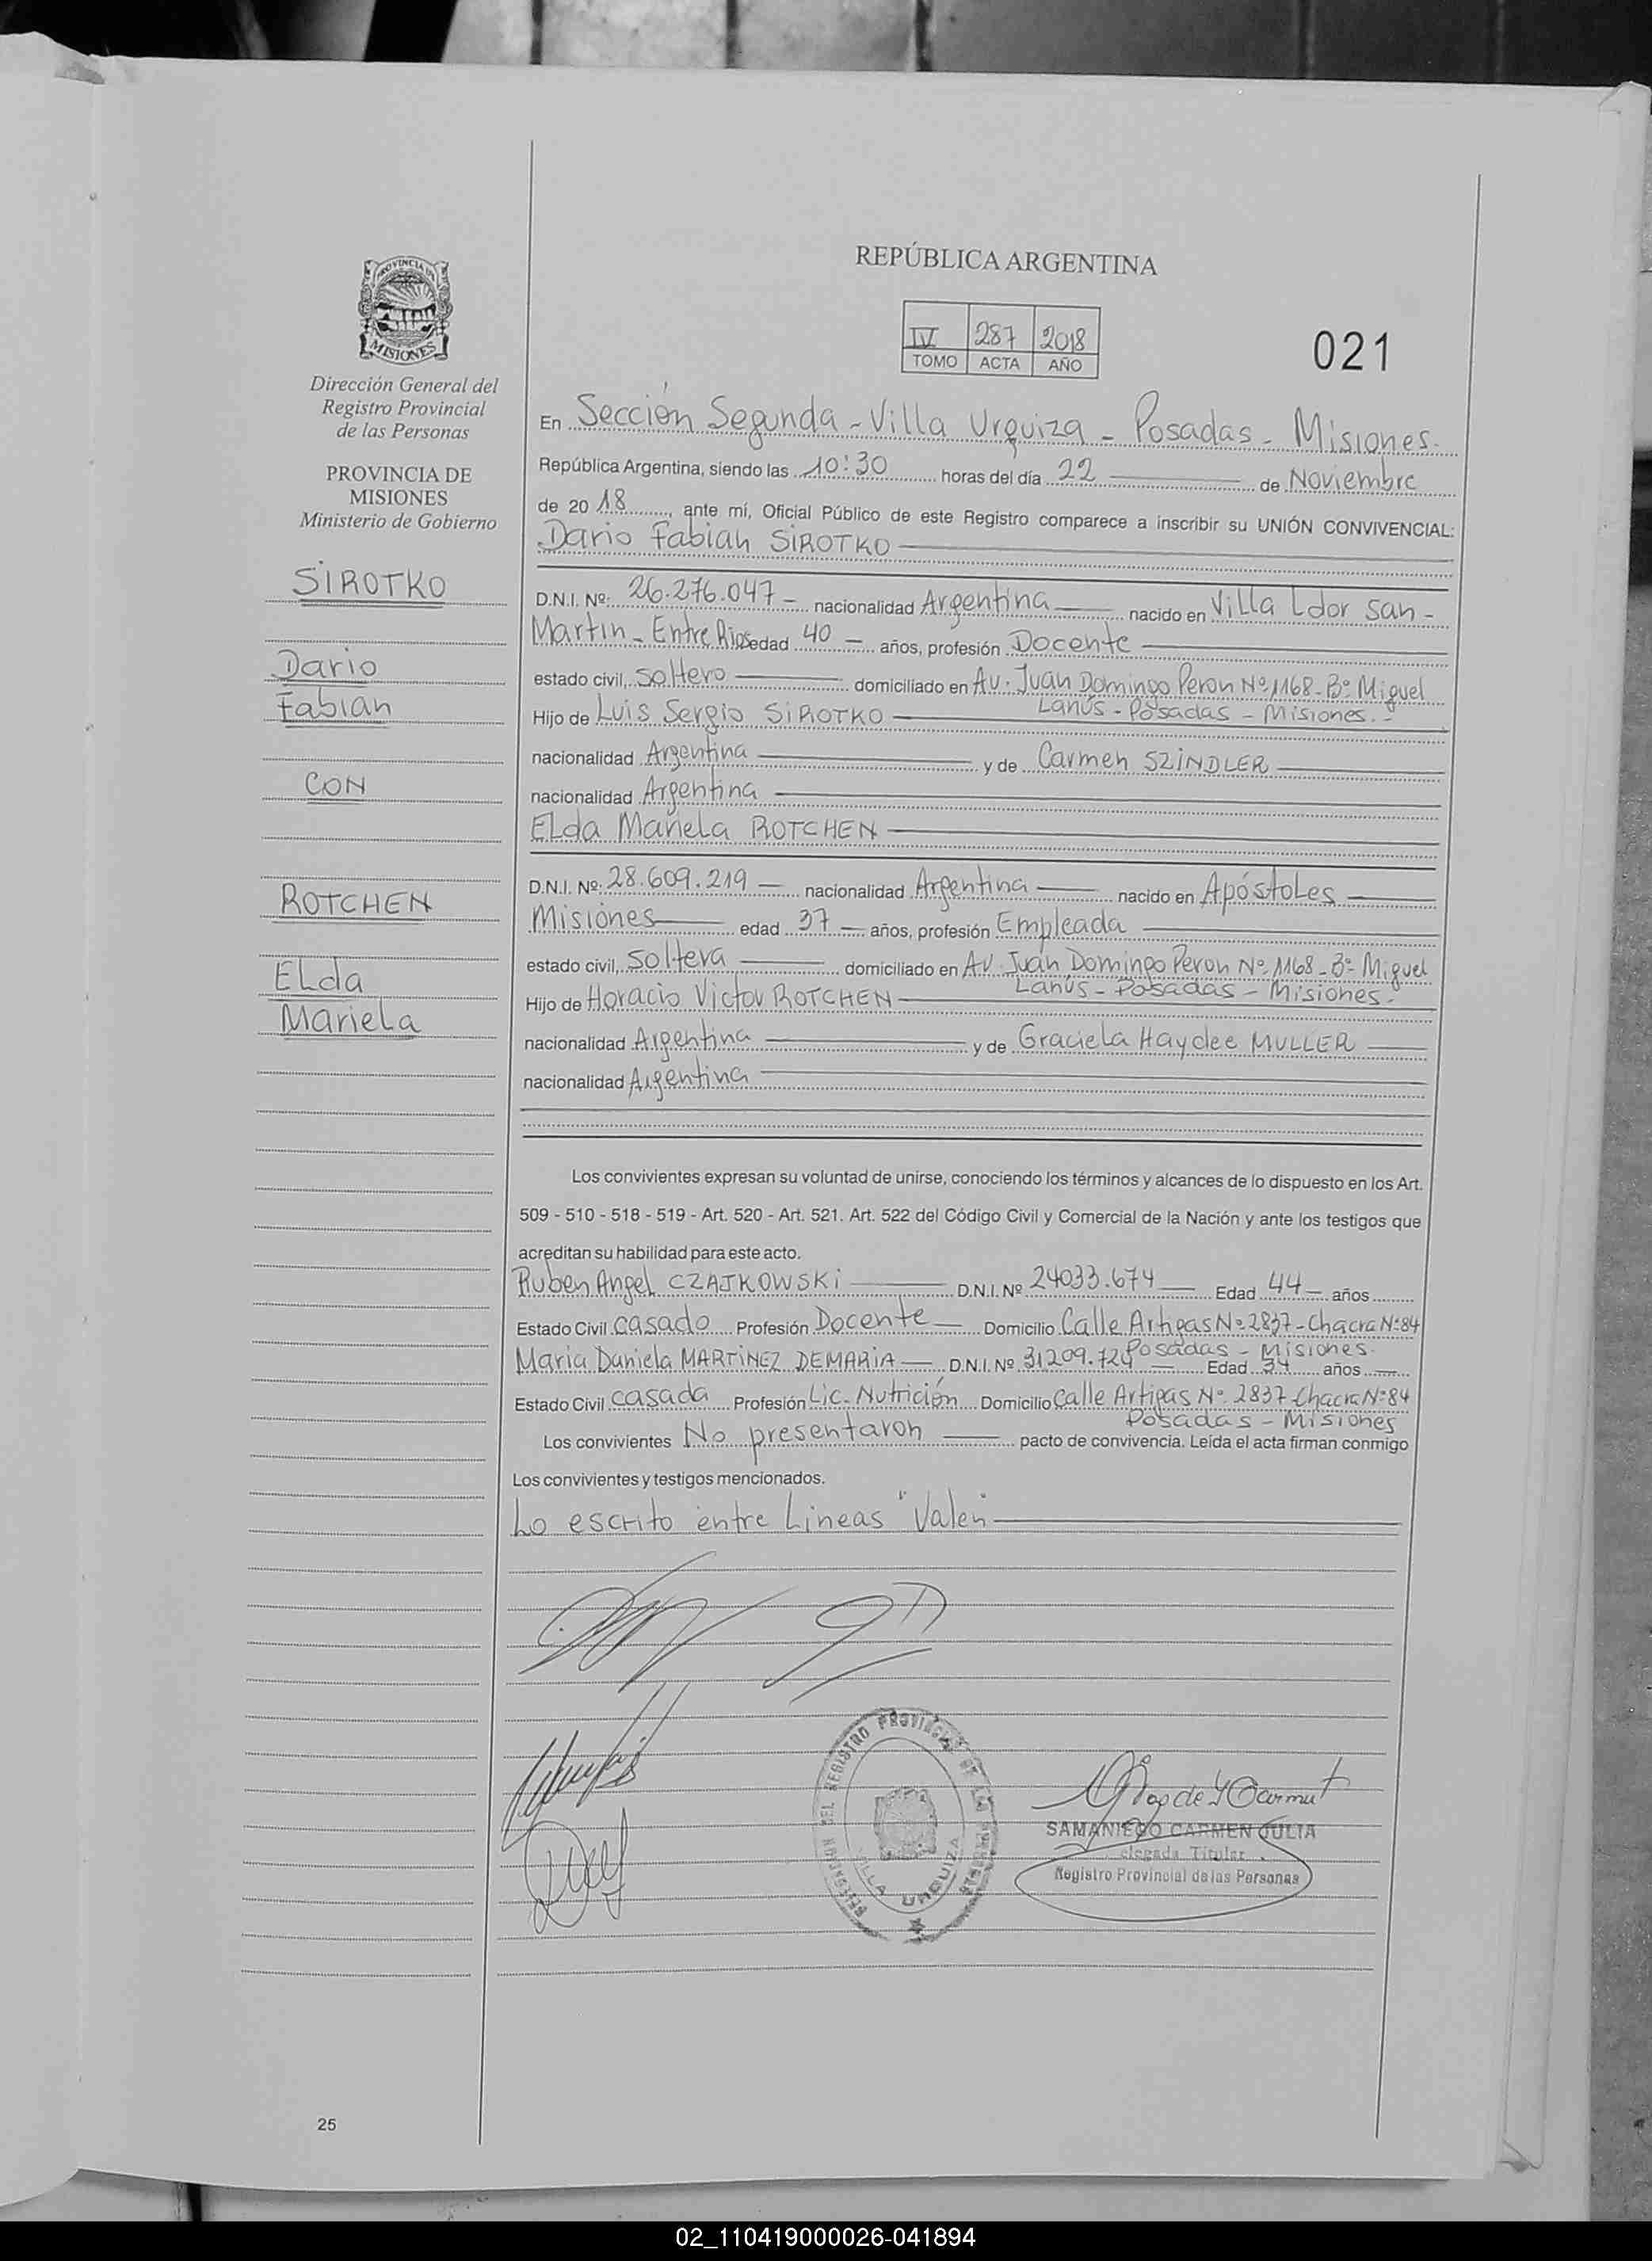 REPÚBLICA ARGENTINA
IV 287 2018
TOMO ACTA AÑO
021
PROVINCIA DE
MISIONES
Dirección General del
Registro Provincial
de las Personas
PROVINCIA DE
MISIONES
Ministerio de Gobierno
SIROTKO
Dario
Fabian
CON
ROTCHEN
Elda
Mariela
En Sección Segunda - Villa Urquiza - Posadas - Misiones.
República Argentina, siendo las 10:30 horas del día 22 de Noviembre
de 2018, ante mí, Oficial Público de este Registro comparece a inscribir su UNIÓN CONVIVENCIAL:
Dario Fabian SIROTKO
D.N.I. Nº: 26.276.047 - nacionalidad Argentina nacido en Villa Ldor San -
Martin - Entre Rios edad 40 - años, profesión Docente
estado civil, soltero domiciliado en Av. Juan Domingo Peron Nº 1168 - Bº Miguel
Lanús - Posadas - Misiones. -
Hijo de Luis Sergio SIROTKO
nacionalidad Argentina y de Carmen SZINDLER
nacionalidad Argentina
Elda Mariela ROTCHEN
D.N.I. Nº: 28.609.219 - nacionalidad Argentina nacido en Apóstoles
Misiones edad 37 - años, profesión Empleada
estado civil, soltera domiciliado en Av. Juan Domingo Peron Nº 1168 - Bº Miguel
Lanús - Posadas - Misiones -
Hijo de Horacio Victor ROTCHEN
nacionalidad Argentina y de Graciela Haydee MULLER
nacionalidad Argentina
Los convivientes expresan su voluntad de unirse, conociendo los términos y alcances de lo dispuesto en los Art.
509 - 510 - 518 - 519 - Art. 520 - Art. 521. Art. 522 del Código Civil y Comercial de la Nación y ante los testigos que
acreditan su habilidad para este acto.
Ruben Angel CZAJKOWSKI D.N.I. Nº 24033.674 Edad 44 - años
Estado Civil casado Profesión Docente Domicilio Calle Artigas Nº 2837 - Chacra Nº 84
Posadas - Misiones.
Maria Daniela MARTINEZ DEMARIA D.N.I. Nº 31209.724 Edad 34 años
Estado Civil casada Profesión Lic. Nutrición Domicilio Calle Artigas Nº 2837 Chacra Nº 84
Posadas - Misiones
Los convivientes No presentaron pacto de convivencia. Leída el acta firman conmigo
Los convivientes y testigos mencionados.
Lo escrito entre Lineas "Valen
REGISTRO PROVINCIAL DE LAS
VILLA URQUIZA
SAMANIEGO CARMEN JULIA
elegada Titular
Registro Provincial de las Personas
25
02_110419000026-041894